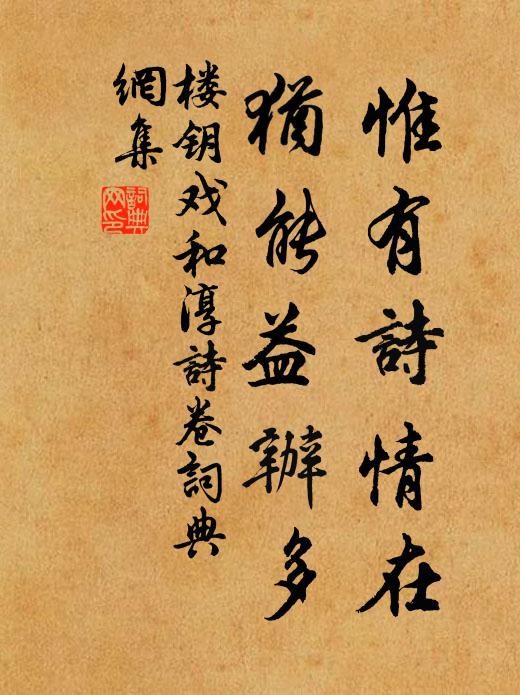 惟有詩情在
猶能益辦多
楼钥戏和淳詩卷詞典
網集
詞典
网印